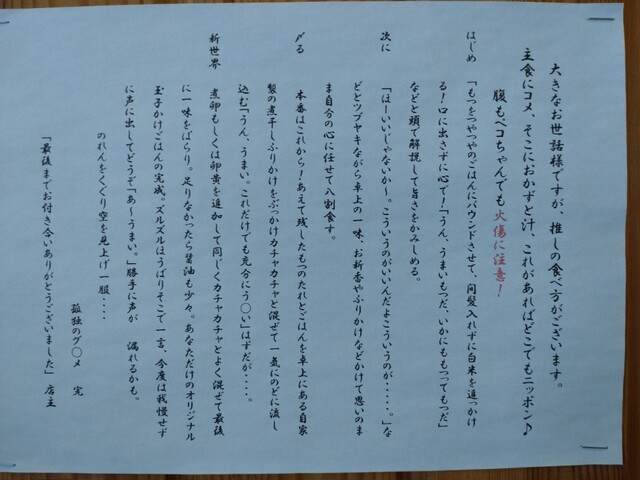 大きなお世話様ですが、推しの食べ方がございます。
主食にコメ、そこにおかずと汁、これがあればどこでもニッポン♪
腹もペコちゃんでも火傷に注意!
はじめ 「もつをつやつやのごはんにバウンドさせて、間髪入れずに白米を追っかけ
る!口に出さずに心で!「うん、うまいもつだ、いかにももつってもつだ」
などと頭で解説して旨さをかみしめる。
次に 「ほーいいじゃないか~。こういうのがいいんだよこういうのが・・・・・。」な
どとツブヤキながら卓上の一味、お新香やふりかけなどかけて思いのま
ま自分の心に任せて八割食す。
〆る 本番はこれから!あえて残したもつのたれとごはんを卓上にある自家
製の煮干しふりかけをぶっかけカチャカチャと混ぜて一気にのどに流し
込む「うん、うまい。これだけでも充分にう〇い」はずだが・・・・。
新世界 煮卵もしくは卵黄を追加して同じくカチャカチャとよく混ぜて最後
に一味をぱらり。足りなかったら醤油も少々。あなただけのオリジナル
玉子かけごはんの完成。ズルズルほうばりそこで一言、今度は我慢せず
に声に出してどうぞ「あ~うまい。」勝手に声が 漏れるかも。
のれんをくぐり空を見上げ一服・・・・
孤独のグ〇メ 完
「最後までお付き合いありがとうございました」 店主